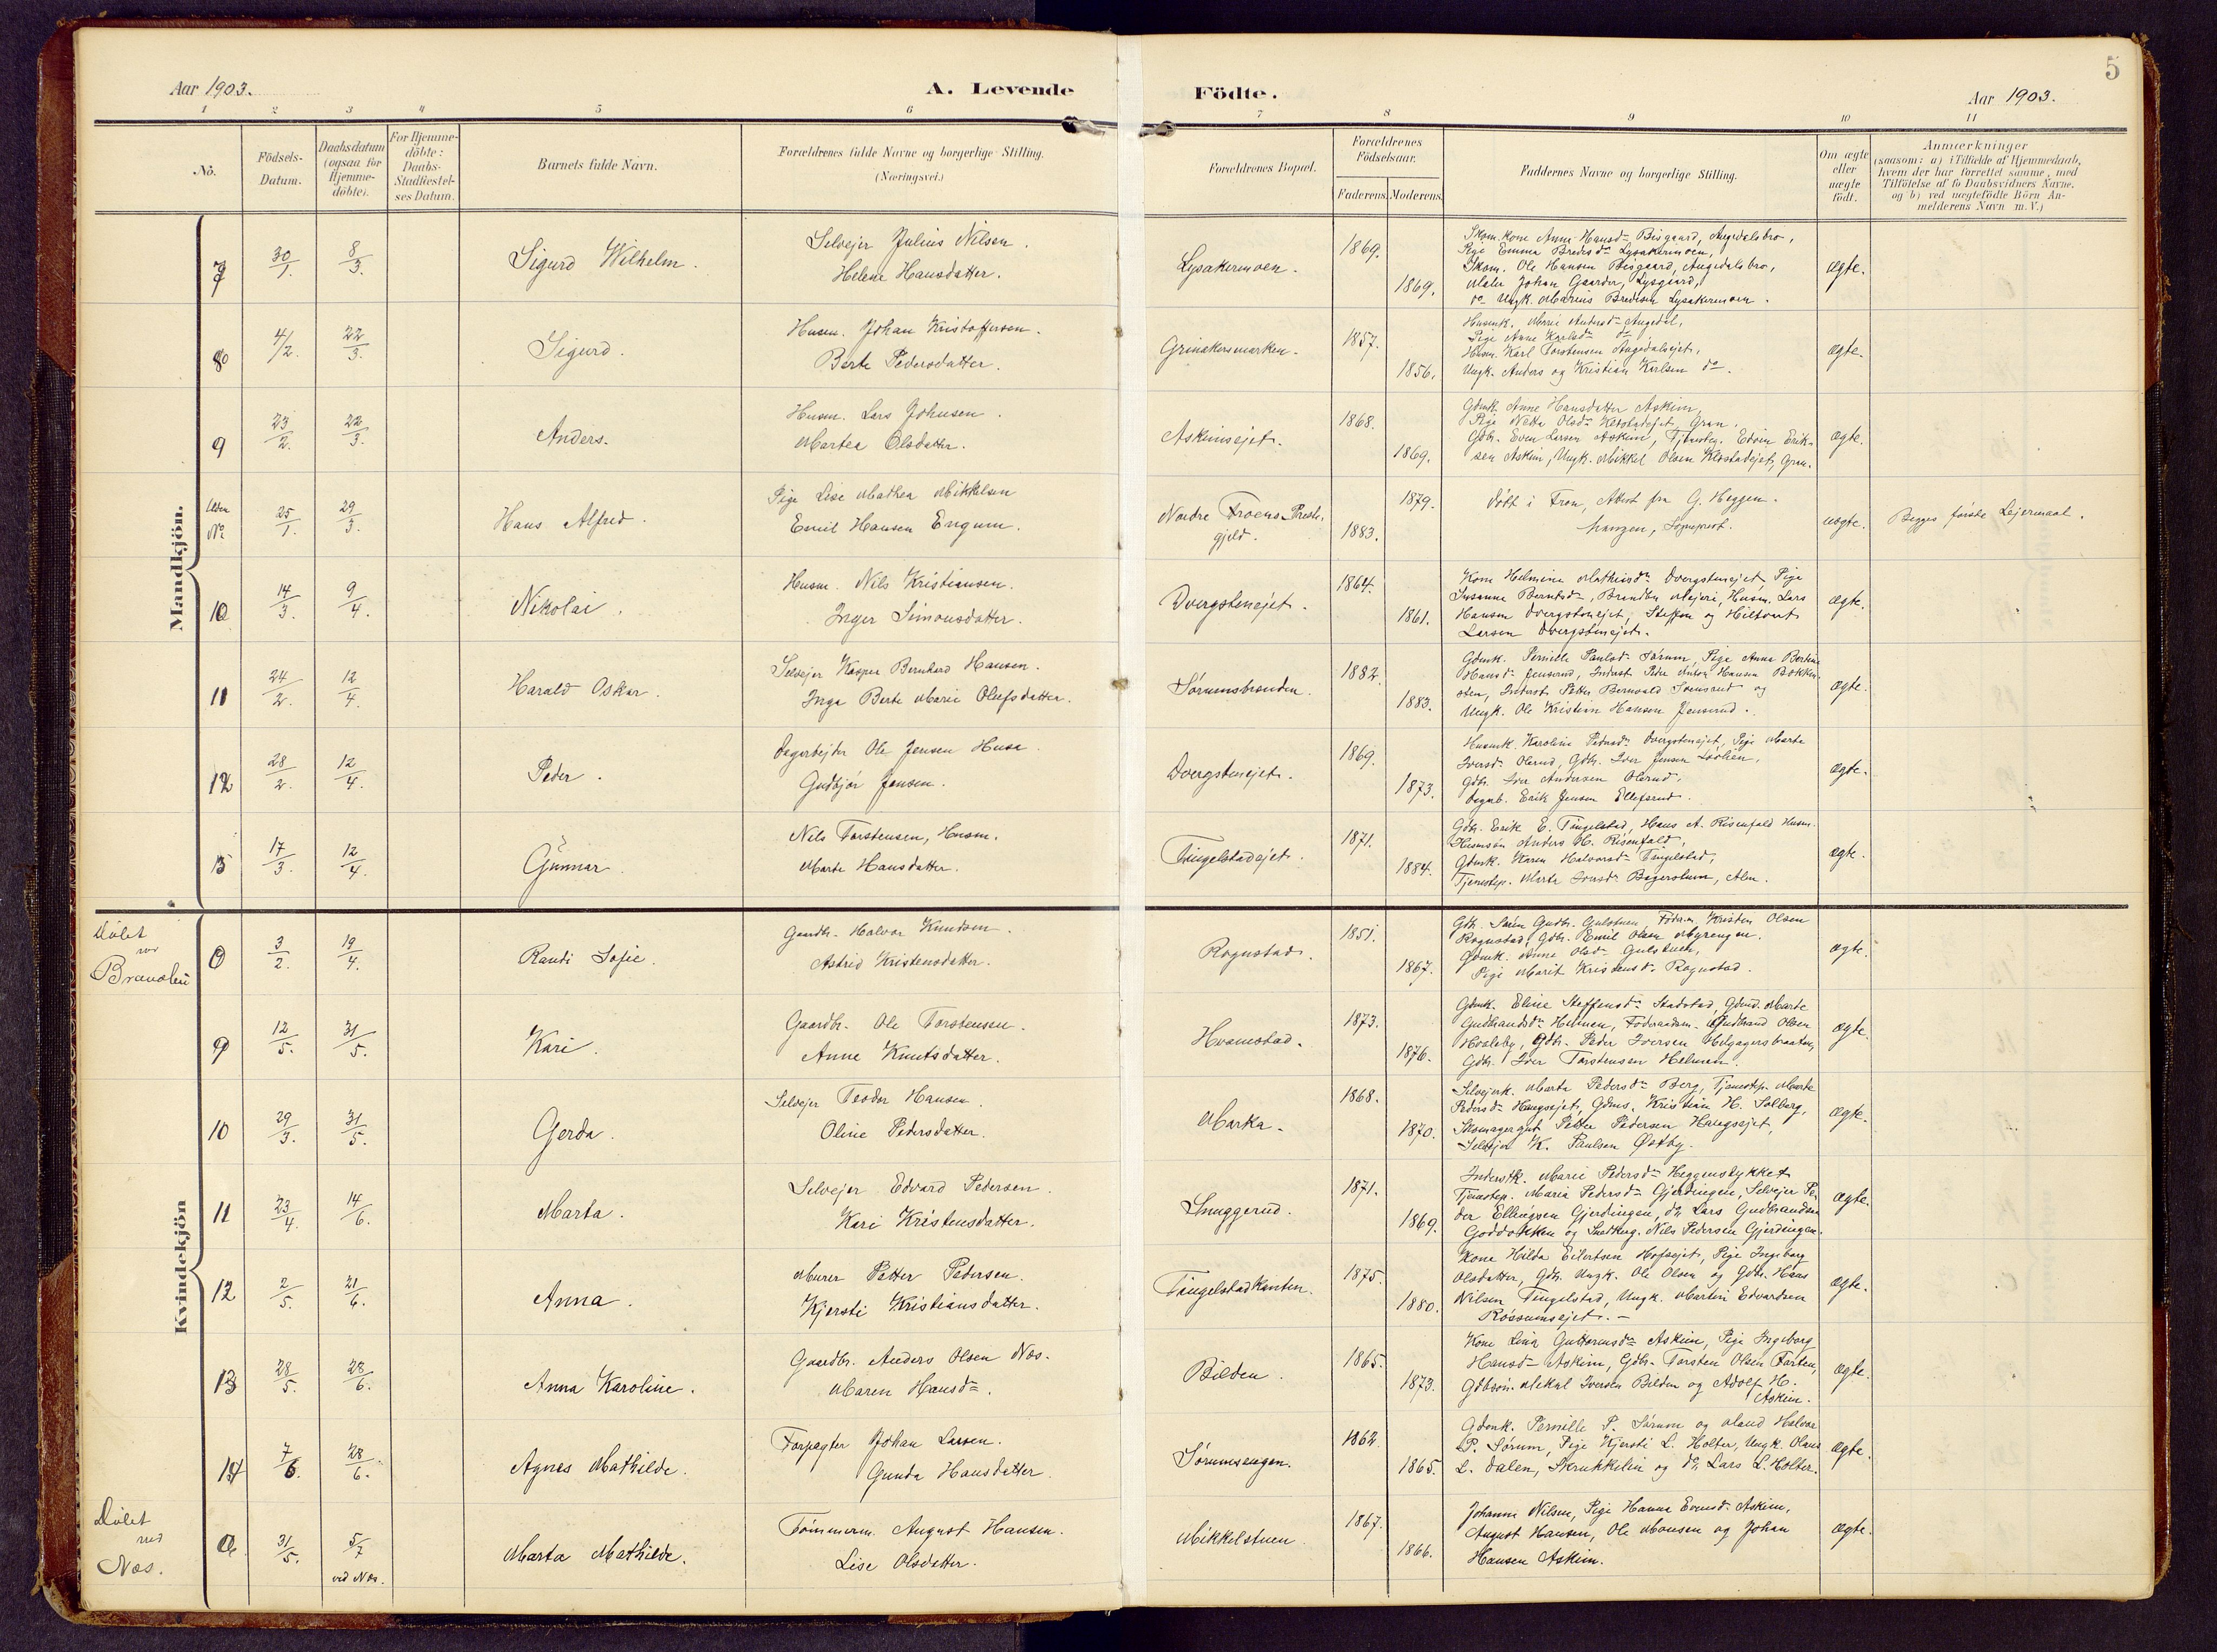 Aar 1903.
A. Levende
Födte.
Aar 1903.
5
1 2 3 4 5 6 7 8 9 10 11
No.
Födsels-
Datum.
Daabsdatum
(ogsaa for
Hjemme-
döbte).
For Hjemme-
döbte:
Daabs-
Stadfæstel-
ses Datum.
Barnets fulde Navn.
Forældrenes fulde Navne og borgerlige Stilling.
(Næringsvei.)
Forældrenes Bopæl.
Forældrenes
Födselsaar.
Faderens. Moderens.
Faddernes Navne og borgerlige Stilling.
Om ægte
eller
uægte
födt.
Anmærkninger
(saasom: a) i Tilfælde af Hjemmedaab,
hvem der har forrettet samme, med
Tilföielse af to Daabsvidners Navne,
og b) ved uægtefödte Börn An-
melderens Navn m. V.)
Mandkjön.
7 30/1. 8/3. Sigurd Wilhelm.
Selvejer Julius Nilsen.
Helene Hansdatter.
Lysakermoen. 1869. 1869.
Skom. kone Anna Hansd. Bisgaard, Augedalsbro,
Pige Emma Bredesd. Lysakermoen,
Skom. Ole Hansen Bisgaard, Augedalsbro,
Maler Johan Gaarder, Lysgaard,
do Ungk. Marius Bredesen Lysakermoen.
ægte.
8 4/2. 22/3. Sigurd.
Husm. Johan Kristoffersen.
Berte Pedersdatter.
Grinakermarken. 1857. 1856.
Husmk. Marie Andersd. Augedal,
Pige Anne Karlsd. do,
Husm. Karl Torstensen Augedalsejet,
Ungk. Anders og Kristian Karlsen do.
ægte.
9 23/2. 22/3. Anders.
Husm. Lars Johnsen.
Martea Olsdatter.
Askimsejet. 1868. 1869.
Gdmk. Anne Hansdatter Askim,
Pige Netta Olsd. Klostadejet, Gran.
Gdbr. Even Larsen Askim, Tjenestg. Edvin Erik-
sen Askim, Ungk. Mikkel Olsen Klostadejet, Gran.
ægte.
Uden
No 25/1. 29/3. Hans Alfred.
Pige Lise Mathea Mikkelsen
Emil Hansen Engum.
Nordre Froens Preste-
gjeld. 1879. 1883.
Døbt i Fron, Attest fra G. Heggen.
Sogneprest.
uægte.
Begges første Lejermaal.
10 14/3. 9/4. Nikolai.
Husm. Nils Kristiansen.
Inger Simonsdatter.
Dvergstenejet. 1864. 1861.
Kone Helmine Mathisd. Dvergstenejet, Pige
Susanne Berntsd., Brandbu Mejeri, Husm. Lars
Hansen Dvergstenejet, Steffen og Hiltvart
Larsen Dvergstenejet.
ægte.
11 24/2. 12/4. Harald Oskar.
Selvejer Kasper Bernhard Hansen.
Inga Berte Marie Olufsdatter.
Sørumsbraaden. 1882. 1883.
Gdmk. Pernille Paulsd. Sørum, Pige Anna Bertine
Hansd. Jensrud, Inderst Peder Anton Hansen Bokken-
sten, Inderst Petter Bernvald og
Ungk. Ole Kristian Hansen Jensrud.
ægte.
12 28/2. 12/4. Peder.
Dagarbejder Ole Jensen Husa.
Gudbjør Jensen.
Dvergstenejet. 1869. 1873.
Husmk. Karoline Pedersd. Dvergstenejet, Pige Marte
Iversd. Olerud, Gdbr. Iver Jensen
Gdbr. Iver Andersen Olerud,
Dagarb. Erik Jensen Ellefsrud.
ægte.
13 17/3. 12/4. Gunnar.
Nils Torstensen, Husm.
Marte Hansdatter.
Tingelstadejet. 1871. 1884.
Gdbr. Erik E. Tingelstad, Hans A. Risenfald Husm.
Husmsøn Anders H. Risenfald,
Gdmk. Karen Halvorsd. Tingelstad,
Tjenestep. Marte Iversd. Bagerstuen, Alm.
ægte.
Kvindekjön
Døbt
ved
Brandbu
0 3/2. 19/4. Randi Sofie.
Gaardbr. Halvor Knudsen.
Astrid Kristensdatter.
Rognstad. 1851. 1867.
Gdbr. Søren Gudbr. Gulstuen, Føderm. Kristen Olsen
Rognstad, Gdbr. Emil Olsen Myrengen.
Gdmk. Anne Olsd. Gulstuen,
Pige Marit Kristensd. Rognstad.
ægte.
9 12/5. 31/5. Kari.
Gaardbr. Ole Torstensen.
Anne Knutsdatter.
Hvamstad. 1873. 1876.
Gdmk. Eline Steffensd. Stadstad, Gdmd. Marte
Gudbrandsd. Helmen, Føderaadsm. Gudbrand Olsen
Hvaleby, Gdbr. Peder Iversen Helgagersbraaten,
Gdbr. Iver Torstensen Helmen.
ægte.
10 29/3. 31/5. Gerda.
Selvejer Teodor Hansen.
Oline Pedersdatter.
Marka. 1868. 1870.
Selvejerk. Marta Pedersd. Berg, Tjenestep. Marte
Pedersd. Haugsejet, Gdms. Kristian H. Solberg,
Skomagergut Petter Pedersen Haugsejet,
Selvejer K. Paulsen Østby.
ægte.
11 23/4. 14/6. Marta.
Selvejer Edvard Pedersen.
Kari Kristensdatter.
Snuggerud. 1871. 1869.
Inderstk. Marie Pedersd. Heggenslykket
Tjenestep. Maria Pedersd. Gjerdingen, Selvejer Pe-
der Ellingsen Gjerdingen, do Lars Gudbrandsen
Goddokken og Snedkerg. Nils Pedersen Gjerdingen.
ægte.
12 2/5. 21/6. Anna.
Murer Petter Pedersen.
Kjersti Kristiansdatter.
Tingelstadkanten. 1875. 1880.
Kona Hilda Eilertsen Hofsejet, Pige Ingeborg
Olsdatter, Gdbr. Ungk. Ole Olsen og Gdbr. Hans
Nilsen Tingelstad, Ungk. Martin Edvardsen
Røssumsejet.
ægte.
13 28/5. 28/6. Anna Karoline.
Gaardbr. Anders Olsen Næs.
Maren Hansd.
Bilden. 1865. 1873.
Kone Lina Guttormsd. Askim, Pige Ingeborg
Hansd. Askim, Gdbr. Torsten Olsen Forten,
Gdbsøn. Mikal Iversen Bilden og Adolf H.
Askim.
ægte.
14 7/6. 28/6. Agnes Mathilde.
Forpagter Johan Larsen.
Gunda Hansdatter.
Sørumsengen. 1862. 1865.
Gdmk. Pernille P. Sørum og Mand Halvor
P. Sørum, Pige Kjersti L. Holter, Ungk. Olaus
L. Dalen, Skrukkelien og do Lars L. Holter.
ægte.
Døbt
ved
Næs.
31/5. 5/7 ved Næs. Marta Mathilde.
Tømmerm. August Hansen.
Lise Olsdatter.
Mikkelstuen. 1867. 1866.
Johanne Nilsen, Pige Hanna Evensd. Askim,
August Hansen, Ole Monsen og Johan
Hansen Askim.
ægte.